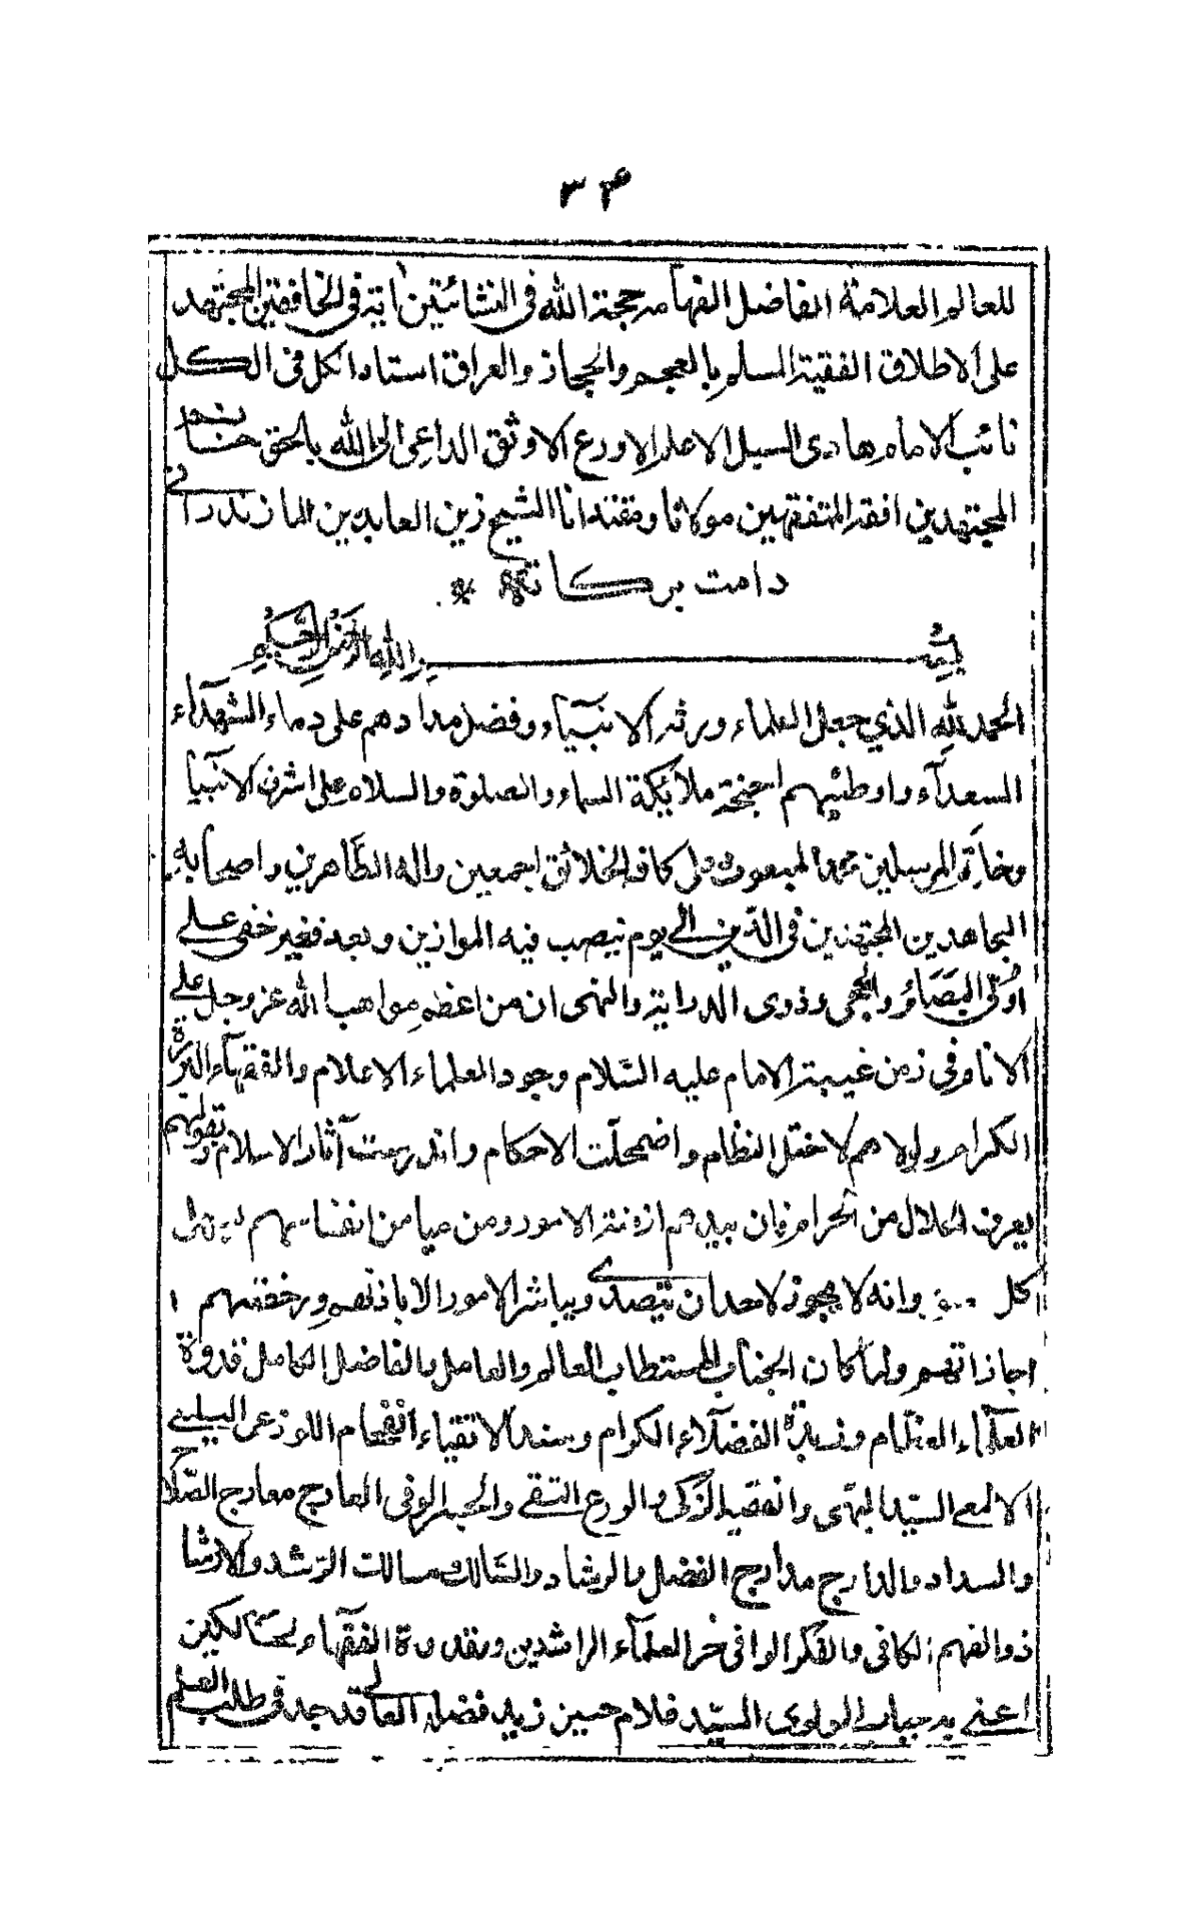 ۳۴
للعالم العلامة الفاضل الفهامه حجة الله فی النشائتین اٰیته فی الخافقین المجتهد
علی الاطلاق الفقیه المسلم بالعجم والحجاز والعراق استاد الکل فی الکل
نائب الامام هادی السبیل الاعلم الاورع الاوثق الداعی الی الله بالحق خاتم
المجتهدین افقه المتفقهین مولانا ومقتدانا الشیخ زین العابدین المازندرانی
دامت برکاته *
بسم الله الرحمن الرحیم
الحمد لله الذی جعل العلماء ورثه الانبیاء وفضل مدادهم علی دماء الشهدآء
السعدآء واوطئهم اجنحة ملائکة السماء والصلوة والسلام علی اشرف الانبیا
وخاتم المرسلین محمد المبعوث علی کافه الخلائق اجمعین واله الطاهرین واصحابه
المجاهدین المجتهدین فی الدین الی یوم ینصب فیه الموازین وبعد فغیر خفی علی
اولی البصائر والحجی وذوی الدرایة والنهی ان من اعظم مواهب الله عز وجل علی
الانام فی زمن غیبة الامام علیه السّلام وجود العلماء الاعلام والفقهآء البررة
الکرام ولولاهم لاختل النظام واضمحلّت الاحکام واندرست آثار الاسلام وبقولهم
یعرف الحلال من الحرام فان بیدهم ازمة الامور ومن میامن انفاسهم
کل وانه لا یجوز لاحد ان یتصدی ویباشر الامور الا باذنهم ورخصتهم
اجازاتهم ولما کان الجناب المستطاب العالم والعامل والفاضل الکامل قدوة
العلماء العظام وزبدة الفضلآء الکرام وسند الاتقیاء الفخام اللوذعی
الالمعی السید البهی والفقیه الزکی والورع التقی والحبر الوفی العارج معارج الصّلاح
والسداد والدارج مدارج الفضل والرشاد والسّالک مسالک الرّشد والارشا
ذو الفهم الکافی والفکر الوافی فخر العلمآء الراشدین وقدوة الفقهآء
اعنی به جناب المولوی السیّد غلام حسین زید فضله العالی قد جد فی طلب العلم